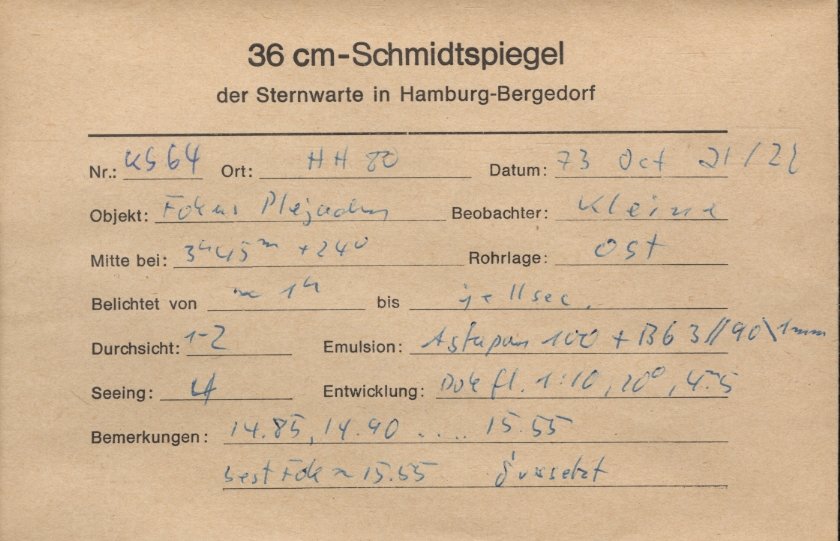 36 cm-Schmidtspiegel
der Sternwarte in Hamburg-Bergedorf
Nr.: KS64 Ort: HH 80 Datum: 73 Oct 21/22
Objekt: Fokus Plejaden Beobachter: Kleine
Mitte bei: 3h45m +24° Rohrlage: Ost
Belichtet von ~ 1h bis je 11sec.
Durchsicht: 1-2 Emulsion: Astrapan 100 + BG 3//90\1mm
Seeing: 4 Entwicklung: Dok fl. 1:10, 20°, 4m5
Bemerkungen: 14.85, 14.90 .... 15.55
best Fok ~ 15.55